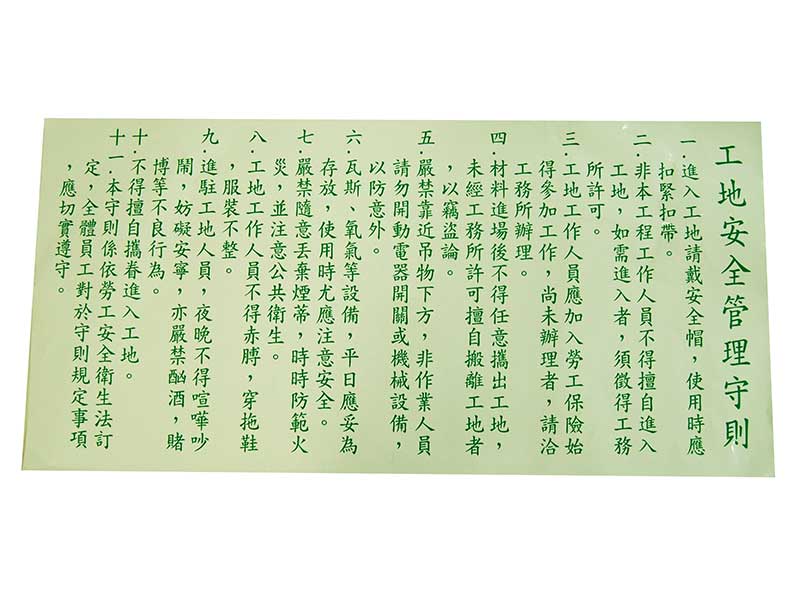 工地安全管理守則
一.進入工地請戴安全帽，使用時應
扣緊扣帶。
二.非本工程工作人員不得擅自進入
工地，如需進入者，須徵得工務
所許可。
三.工地工作人員應加入勞工保險始
得參加工作，尚未辦理者，請洽
工務所辦理。
四.材料進場後不得任意攜出工地，
未經工務所許可擅自搬離工地者
，以竊盜論。
五.嚴禁靠近吊物下方，非作業人員
請勿開動電器開關或機械設備，
以防意外。
六.瓦斯、氧氣等設備，平日應妥為
存放，使用時尤應注意安全。
七.嚴禁隨意丟棄煙蒂，時時防範火
災，並注意公共衛生。
八.工地工作人員不得赤膊，穿拖鞋
，服裝不整。
九.進駐工地人員，夜晚不得喧嘩吵
鬧，妨礙安寧，亦嚴禁酗酒，賭
博等不良行為。
十.不得擅自攜眷進入工地。
十一.本守則係依勞工安全衛生法訂
定，全體員工對於守則規定事項
，應切實遵守。